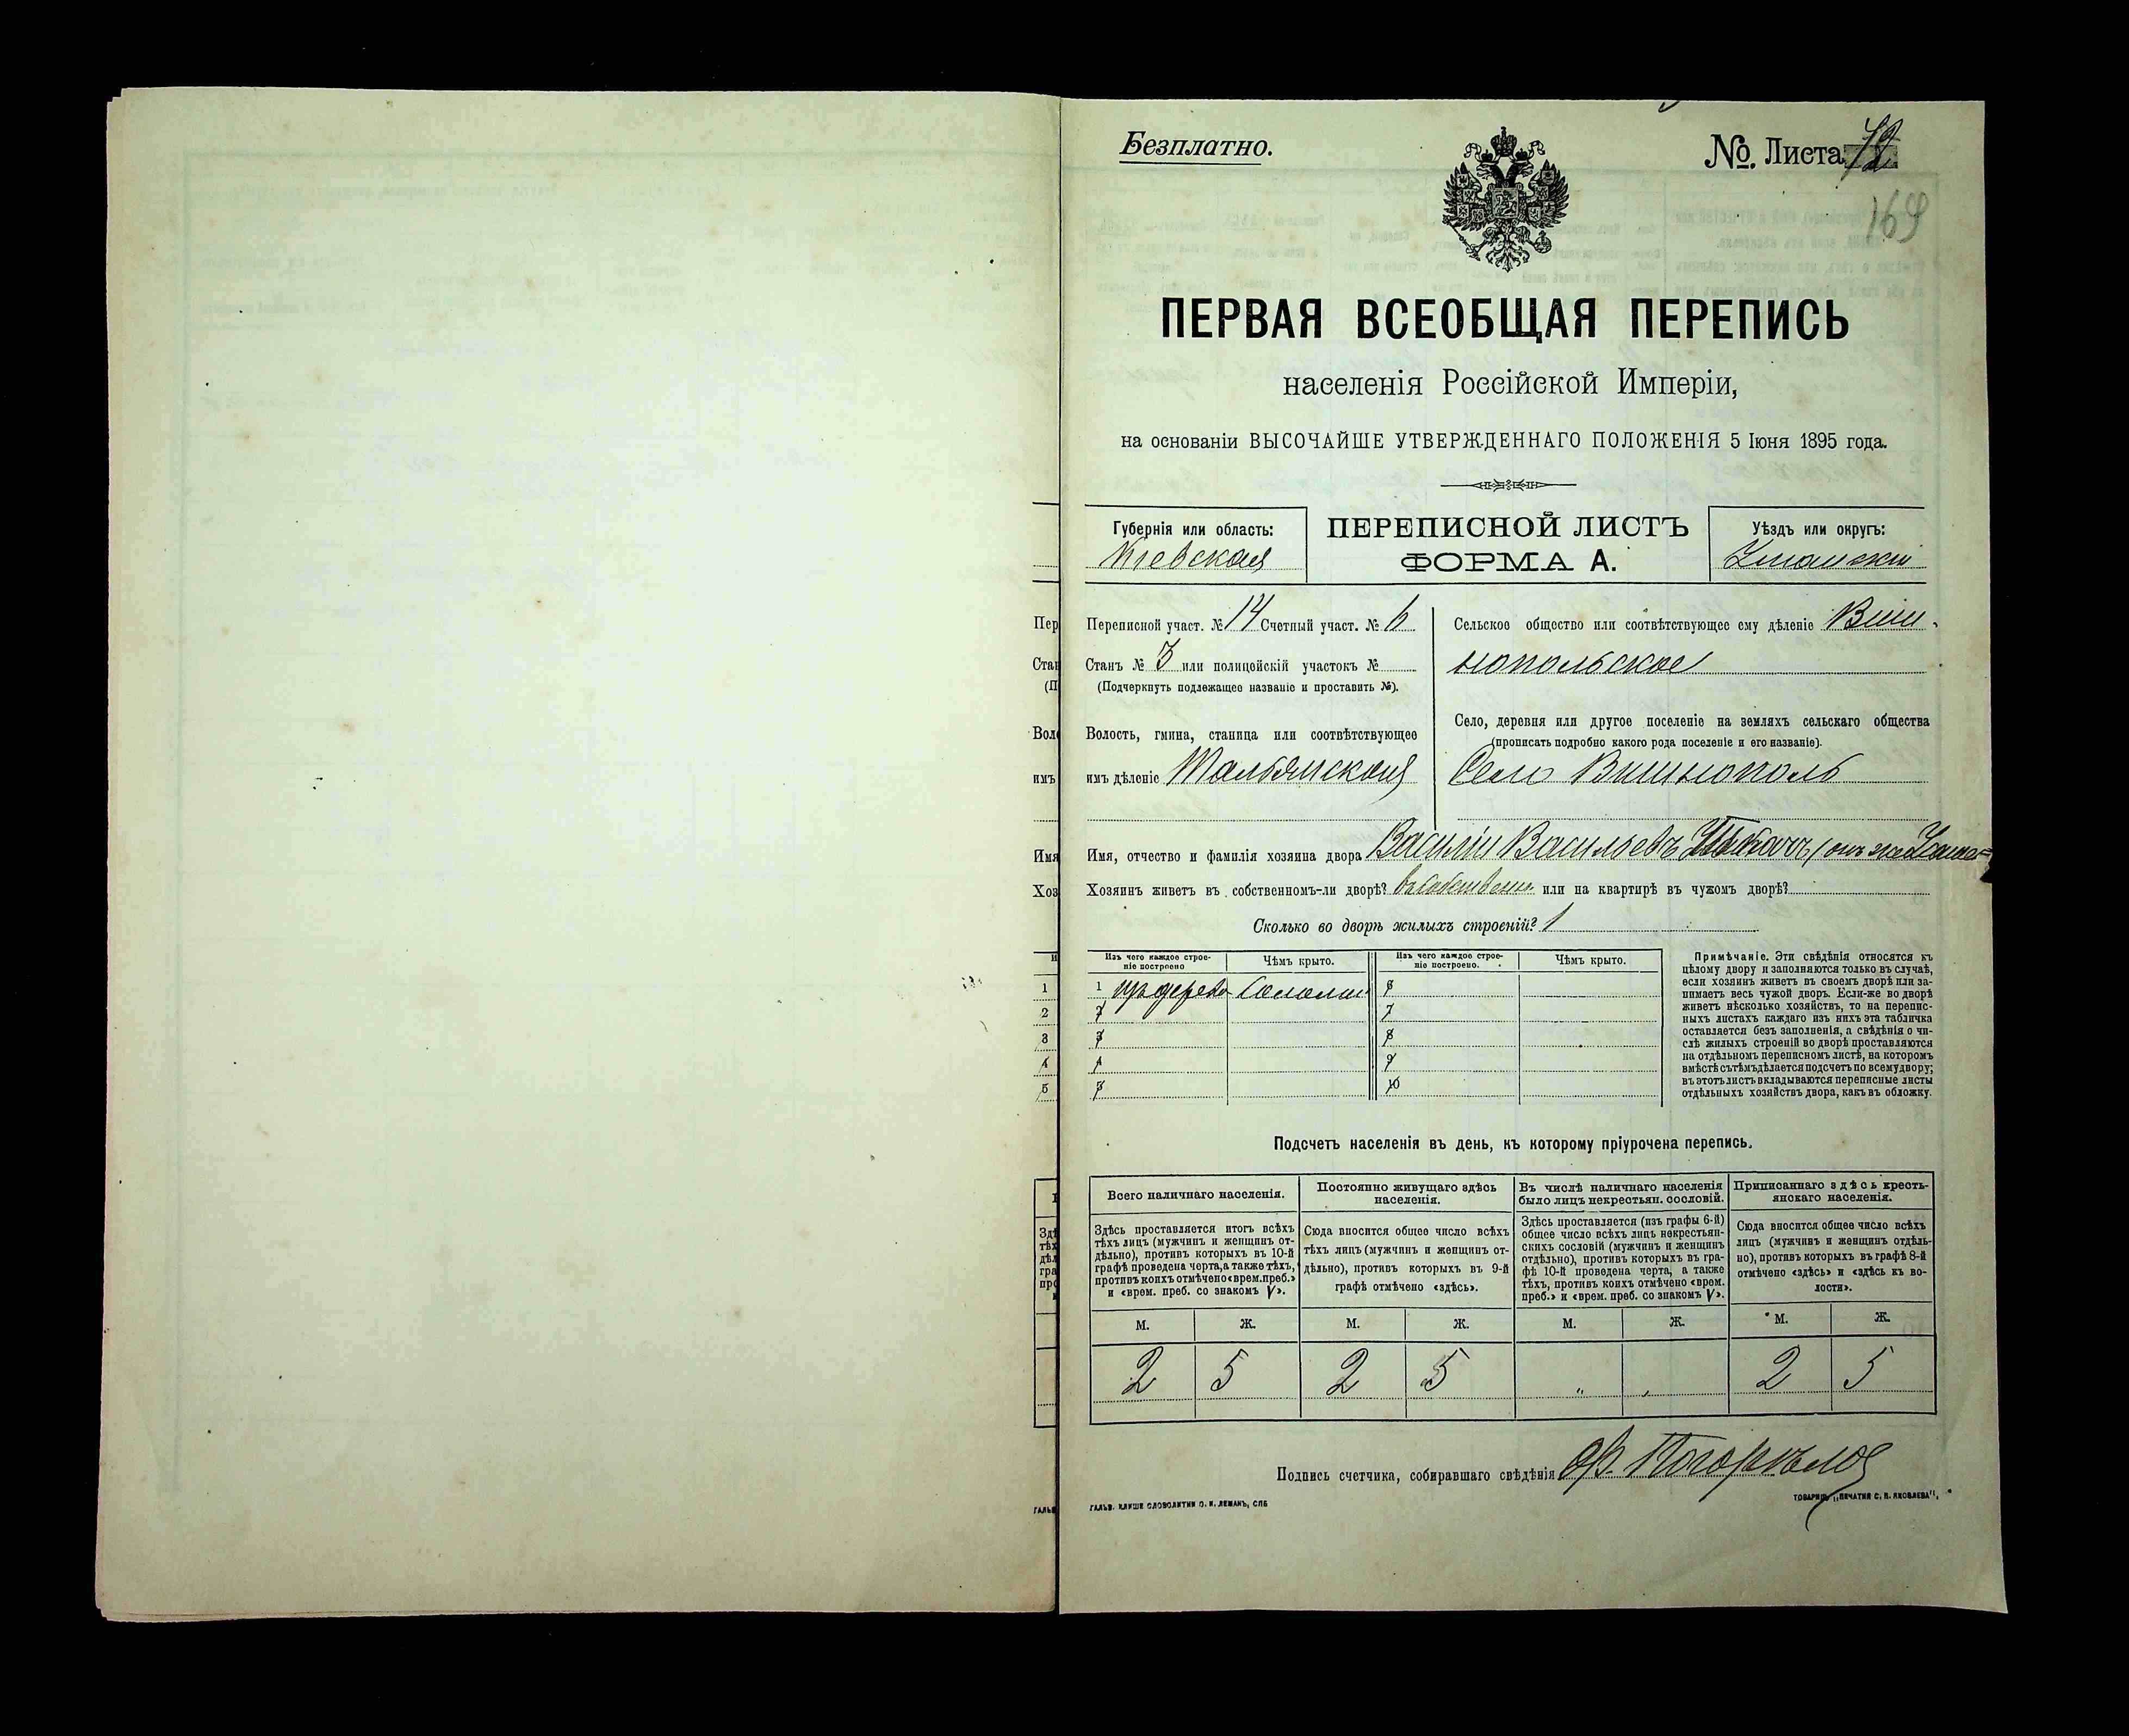 Безплатно.
№. Листа 72
169
ПЕРВАЯ ВСЕОБЩАЯ ПЕРЕПИСЬ
населенія Россійской Имперіи,
на основаніи ВЫСОЧАЙШЕ УТВЕРЖДЕННАГО ПОЛОЖЕНІЯ 5 Іюня 1895 года.
Губернія или область:
Кіевская
ПЕРЕПИСНОЙ ЛИСТЪ
ФОРМА А.
Уѣздъ или округъ:
Уманскій
Переписной участ. № 14 Счетный участ. № 6
Станъ № 3 или полицейскій участокъ №
(Подчеркнуть подлежащее названіе и проставить №).
Волость, гмина, станица или соотвѣтствующее
имъ дѣленіе Тальянская
Сельское общество или соотвѣтствующее ему дѣленіе Виш-
нопольское
Село, деревня или другое поселеніе на земляхъ сельскаго общества
(прописать подробно какого рода поселеніе и его названіе).
Село Вишнополь
Имя, отчество и фамилія хозяина двора Василій Васильевъ (онъ же
Хозяинъ живетъ въ собственномъ-ли дворѣ? въ собственн. или на квартирѣ въ чужомъ дворѣ?
Сколько во дворѣ жилыхъ строеній? 1
Изъ чего каждое строе-
ніе построено
Чѣмъ крыто.
Изъ чего каждое строе-
ніе построено.
Чѣмъ крыто.
1 изъ дерева Соломой
2
3
4
5
6
7
8
9
10
Примѣчаніе. Эти свѣдѣнія относятся къ
цѣлому двору и заполняются только въ случаѣ,
если хозяинъ живетъ въ своемъ дворѣ или за-
нимаетъ весь чужой дворъ. Если-же во дворѣ
живетъ нѣсколько хозяйствъ, то на перепис-
ныхъ листахъ каждаго изъ нихъ эта табличка
оставляется безъ заполненія, а свѣдѣнія о чи-
слѣ жилыхъ строеній во дворѣ проставляются
на отдѣльномъ переписномъ листѣ, на которомъ
вмѣстѣ съ тѣмъ дѣлается подсчетъ по всему двору;
въ этотъ листъ вкладываются переписные листы
отдѣльныхъ хозяйствъ двора, какъ въ обложку.
Подсчетъ населенія въ день, къ которому пріурочена перепись.
Всего наличнаго населенія.
Здѣсь проставляется итогъ всѣхъ
тѣхъ лицъ (мужчинъ и женщинъ от-
дѣльно), противъ которыхъ въ 10-й
графѣ проведена черта, а также тѣхъ,
противъ коихъ отмѣчено «врем. преб.»
и «врем. преб. со знакомъ V».
Постоянно живущаго здѣсь
населенія.
Сюда вносится общее число всѣхъ
тѣхъ лицъ (мужчинъ и женщинъ от-
дѣльно), противъ которыхъ въ 9-й
графѣ отмѣчено «здѣсь».
Въ числѣ наличнаго населенія
было лицъ некрестьян. сословій.
Здѣсь проставляется (изъ графы 6-й)
общее число всѣхъ лицъ некрестьян-
скихъ сословій (мужчинъ и женщинъ
отдѣльно), противъ которыхъ въ гра-
фѣ 10-й проведена черта, а также
тѣхъ, противъ коихъ отмѣчено «врем.
преб.» и «врем. преб. со знакомъ V».
Приписаннаго здѣсь кресть-
янскаго населенія.
Сюда вносится общее число всѣхъ
лицъ (мужчинъ и женщинъ отдѣль-
но), противъ которыхъ въ графѣ 8-й
отмѣчено «здѣсь» и «здѣсь къ во-
лости».
М. Ж. М. Ж. М. Ж. М. Ж.
2 5 2 5 „ „ 2 5
Подпись счетчика, собиравшаго свѣдѣнія Ф. Погорѣлов
ГАЛЬВ. КЛИШЕ СЛОВОЛИТНИ О. И. ЛЕМАНЪ, СПБ
ТОВАРИЩ. „ПЕЧАТНЯ С. П. ЯКОВЛЕВА",